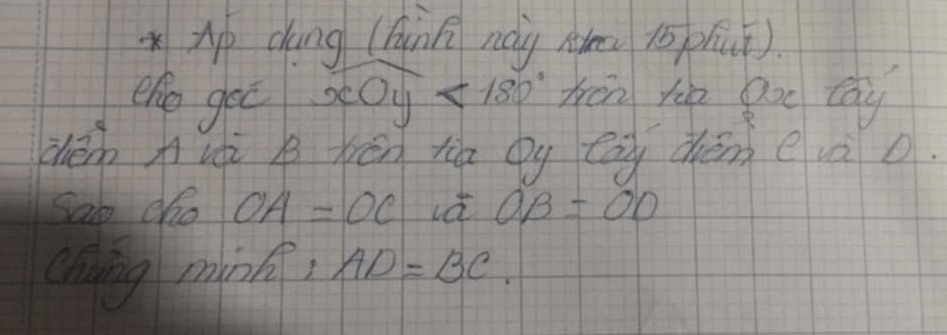 * Áp dụng (hình này ktra 15 phút).
Cho góc xOy < 180° trên tia Ox lấy
điểm A và B trên tia Oy lấy điểm C và D.
Sao cho OA = OC và OB = OD
Chứng minh: AD = BC.